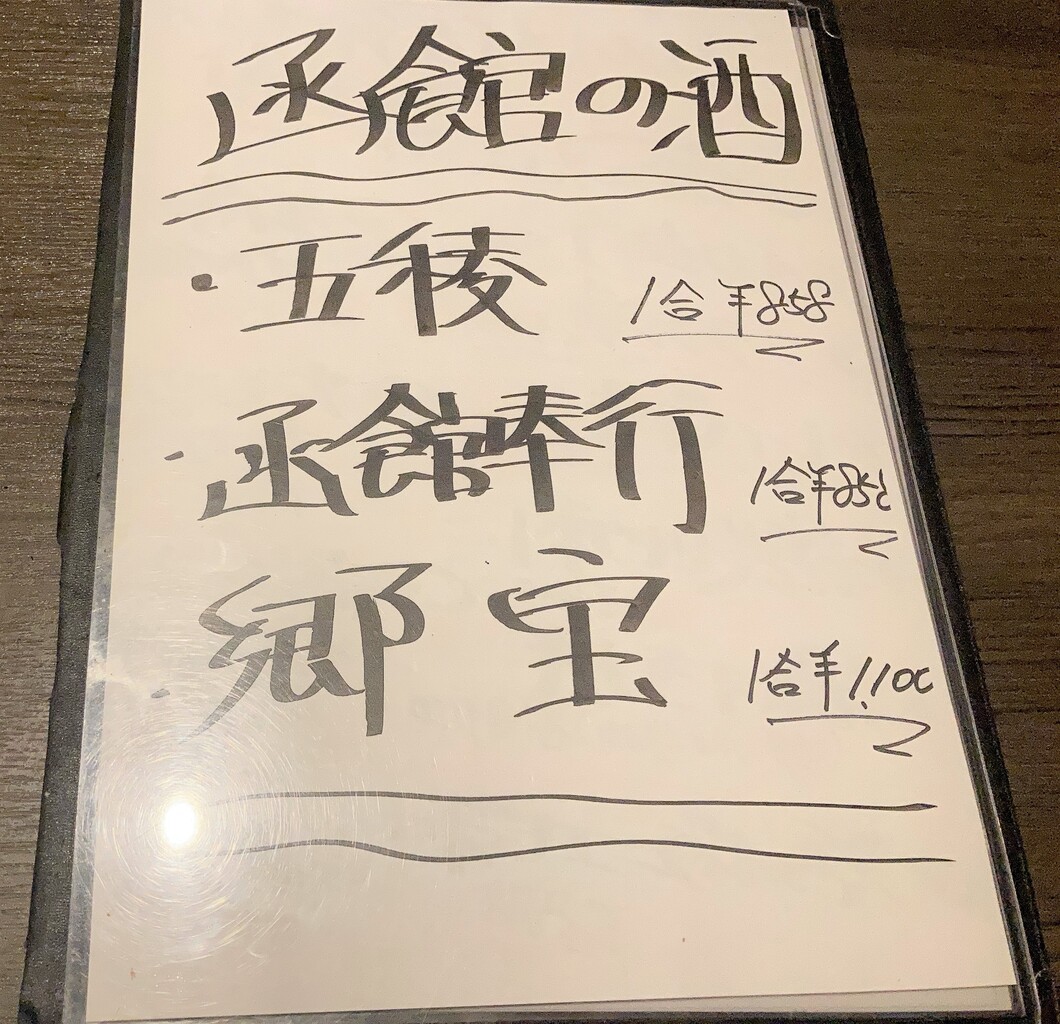 函館の酒
・五稜 1合¥858
・函館奉行 1合¥858
・郷宝 1合¥1,100